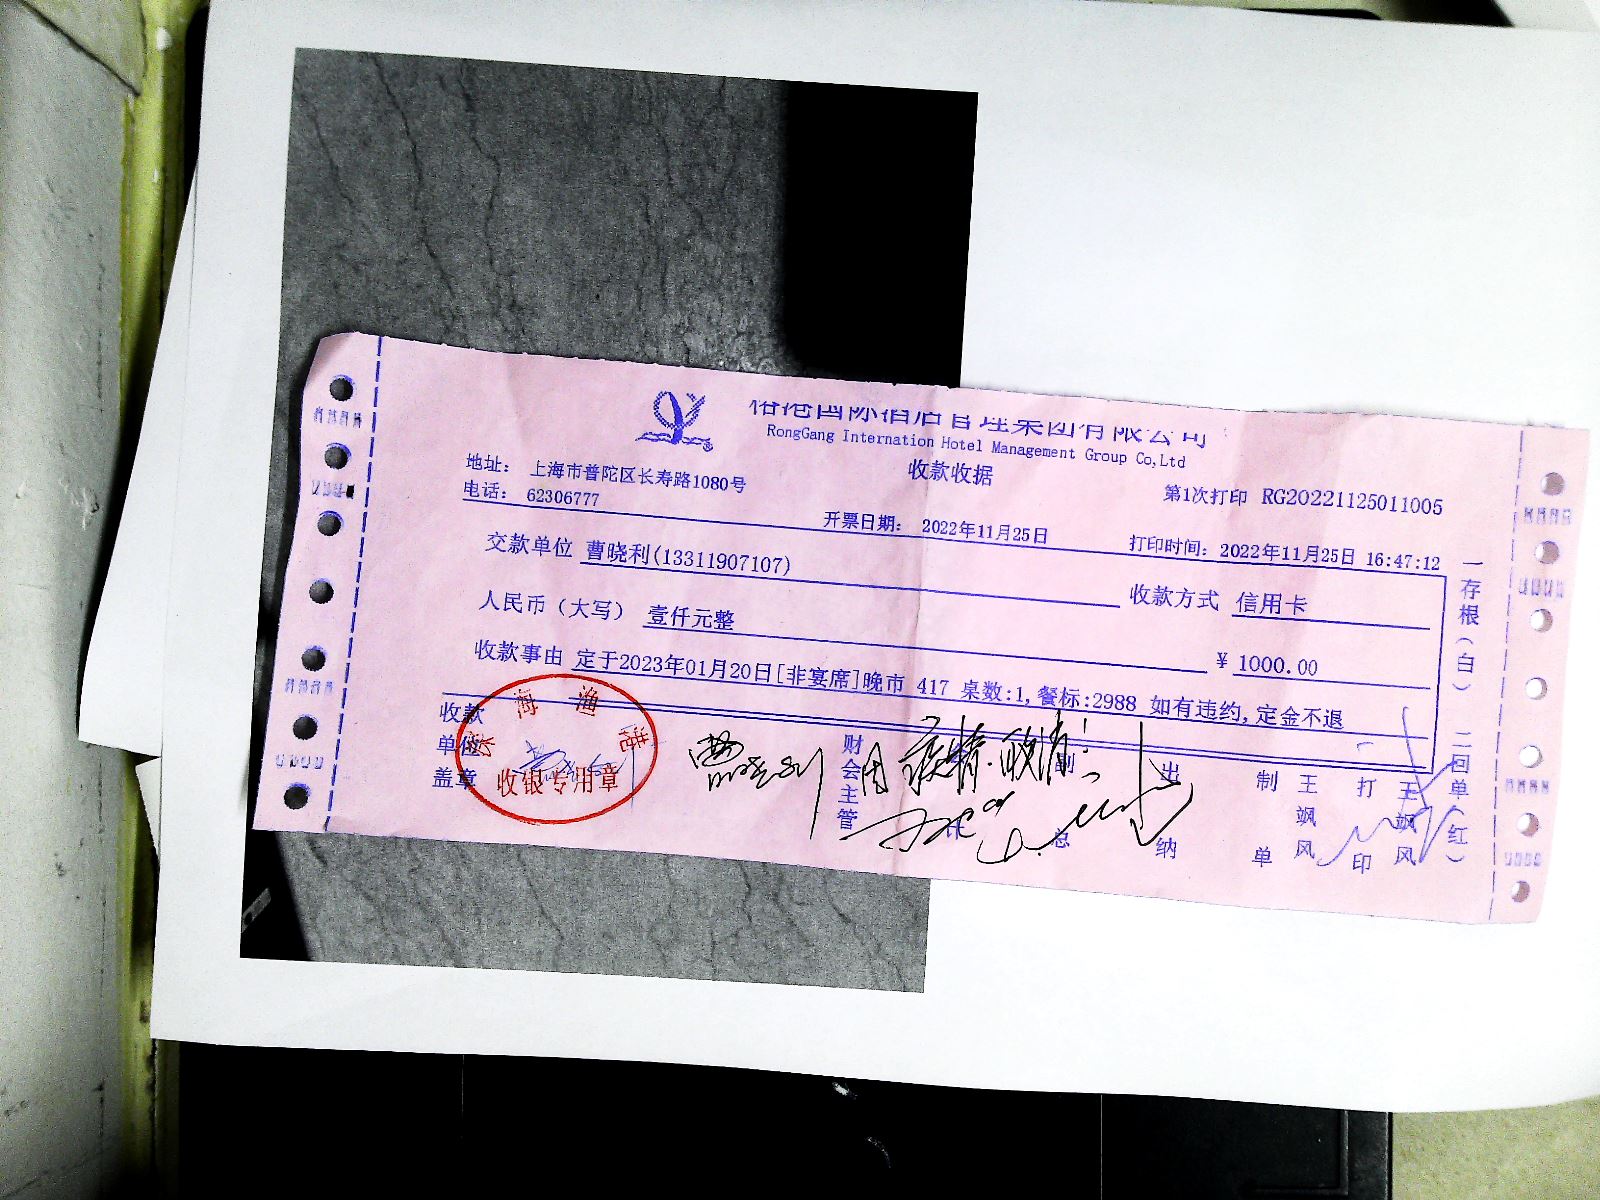 榕港国际酒店管理集团有限公司
RongGang Internation Hotel Management Group Co,Ltd
收款收据
地址： 上海市普陀区长寿路1080号
电话： 62306777
第1次打印 RG20221125011005
开票日期： 2022年11月25日
打印时间：2022年11月25日 16:47:12
交款单位 曹晓利(13311907107)
收款方式 信用卡
人民币（大写） 壹仟元整
¥ 1000.00
收款事由 定于2023年01月20日[非宴席]晚市 417 桌数:1,餐标:2988 如有违约,定金不退
收款单位盖章
海渔港
收银专用章
曹晓利
因疫情取消!
财会主管
副总
出纳
制单
王飒风
打印
王飒风
一存根(白)
二回单(红)